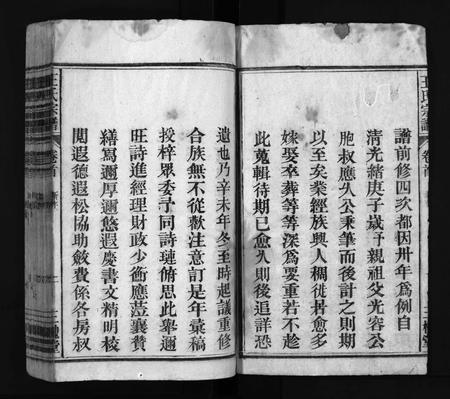 王氏宗譜
卷首
三槐堂
譜前修四次都因卅年爲例自
清光緒庚子歲予親祖父光容公
胞叔應久公秉筆而後計之則期
以至矣業經族興人稠徙若愈多
嫁娶卒葬等等深爲要重若不趁
此蒐輯待期已愈久則後追詳恐
遺也乃辛未年冬至時起議重修
合族無不從歡注意訂是年彙稿
授梓眾委予同詩璉俯思此舉邇
旺詩進經理財政少衡應蘴襄贊
繕寫邇厚邇悠遐慶書文精明校
閱遐德遐松協助斂費係各房叔
王氏宗譜
卷首
三槐堂